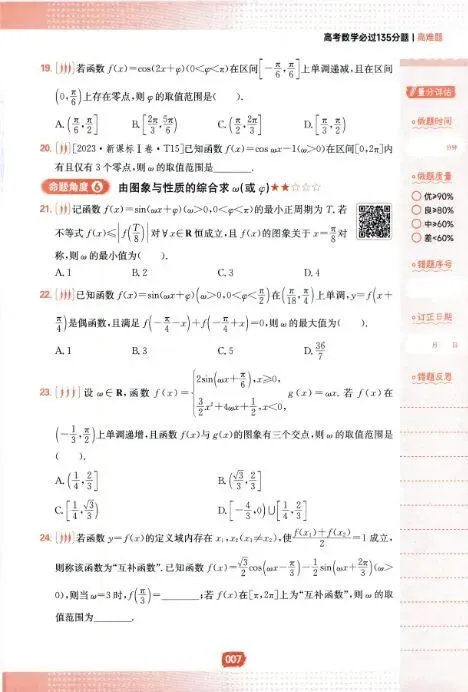 高考数学必过135分题 | 高难题
19. 若函数 f(x)=cos(2x+φ)(0<φ<π)在区间[-π/6,π/6]上单调递减,且在区间
(0,π/6)上存在零点,则φ的取值范围是( ).
A.(π/6,π/2] B.[2π/3,5π/6) C.(π/2,2π/3] D.[π/3,π/2)
20. [2023·新课标Ⅰ卷·T15]已知函数 f(x)=cos ωx-1(ω>0)在区间[0,2π]内
有且仅有3个零点,则ω的取值范围是________.
命题角度6 由图象与性质的综合求ω(或φ)★★☆☆☆
21. 记函数 f(x)=sin(ωx+φ)(ω>0,0<φ<π)的最小正周期为T.若
不等式 f(x)≤|f(T/8)|对∀x∈R恒成立,且 f(x)的图象关于 x=π/8对
称,则ω的最小值为( ).
A.1 B.2 C.3 D.4
22. 已知函数 f(x)=sin(ωx+φ)(ω>0,0<φ<π/2)在(π/18,π/4)上单调,y=f(x+
π/4)是偶函数,且满足 f(-π/4-x)+f(-π/4+x)=0,则ω的最大值为( ).
A.1 B.3 C.5 D.36/7
23. 设 ω∈R,函数 f(x)={2sin(ωx+π/6),x≥0, 3/2x²+4ωx+1/2,x<0, g(x)=ωx.若 f(x)在
(-1/3,π/2)上单调递增,且函数 f(x)与 g(x)的图象有三个交点,则ω的取值范围是
( ).
A.(1/4,2/3] B.(√3/3,2/3]
C.[1/4,√3/3) D.[-4/3,0)∪[1/4,2/3]
24. 若函数 y=f(x)的定义域内存在 x₁,x₂(x₁≠x₂),使(f(x₁)+f(x₂))/2=1成立,
则称该函数为“互补函数”.已知函数 f(x)=√3/2cos(ωx-π/3)-1/2sin(ωx+2π/3)(ω>
0),则当ω=3时,f(π/3)=________;若 f(x)在[π,2π]上为“互补函数”,则ω的取
值范围为________.
007
量分评估
做题时间
分钟
做题质量
优≥90%
良≥80%
中≥60%
差<60%
错题序号
订正日期
月 日
错题反思